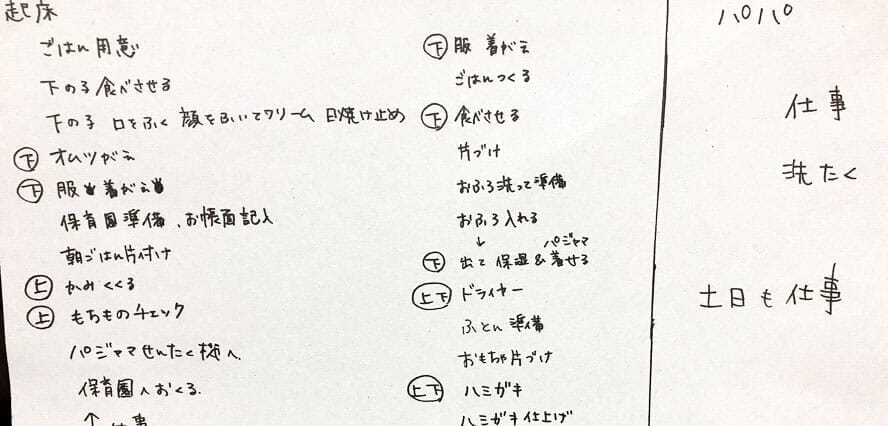 起床
ごはん用意
下の子食べさせる
下の子 口をふく 顔をふいてクリーム 日焼け止め
下 オムツがえ
下 服 着がえ
保育園準備、お帳面記入
朝ごはん片付け
上 かみくくる
上 もちものチェック
パジャマせんたく機へ
保育園へおくる
↑ 仕事
下 服 着がえ
ごはんつくる
下 食べさせる
片づけ
おふろ洗って準備
おふろ入れる
↓ パジャマ
下 出て 保湿&着せる
上下 ドライヤー
ふとん準備
おもちゃ片づけ
上下 ハミガキ
ハミガキ仕上げ
パパ
仕事
洗たく
土日も仕事